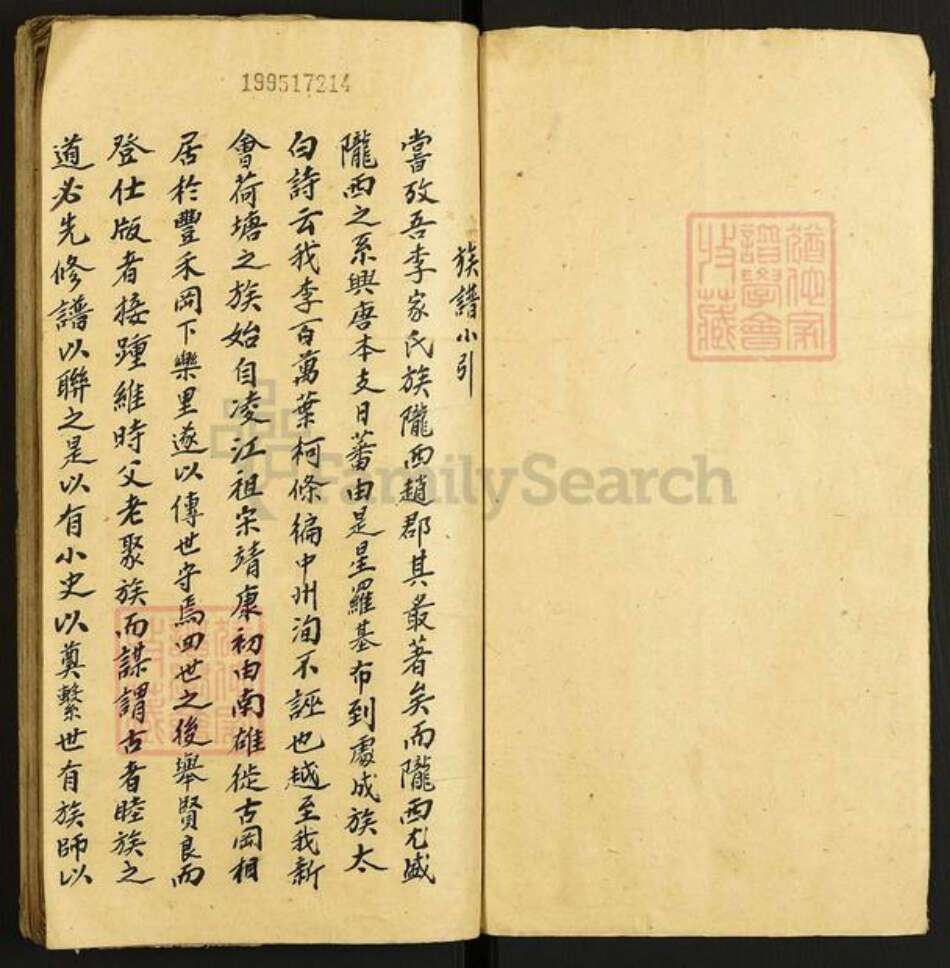 199517214
族譜小引
嘗攷吾李家氏族隴西趙郡其最著矣而隴西尤盛
隴西之系興唐本支日蕃由是星羅基布到處成族太
白詩云我李百萬葉柯條徧中州洵不誣也越至我新
會荷塘之族始自凌江祖宋靖康初由南雄徙古岡相
居於豐禾岡下樂里遂以傳世守焉四世之後舉賢良而
登仕版者接踵維時父老聚族而謀謂古者睦族之
道必先修譜以聯之是以有小史以奠繫世有族師以
猶他家
譜學會
收藏
FamilySearch